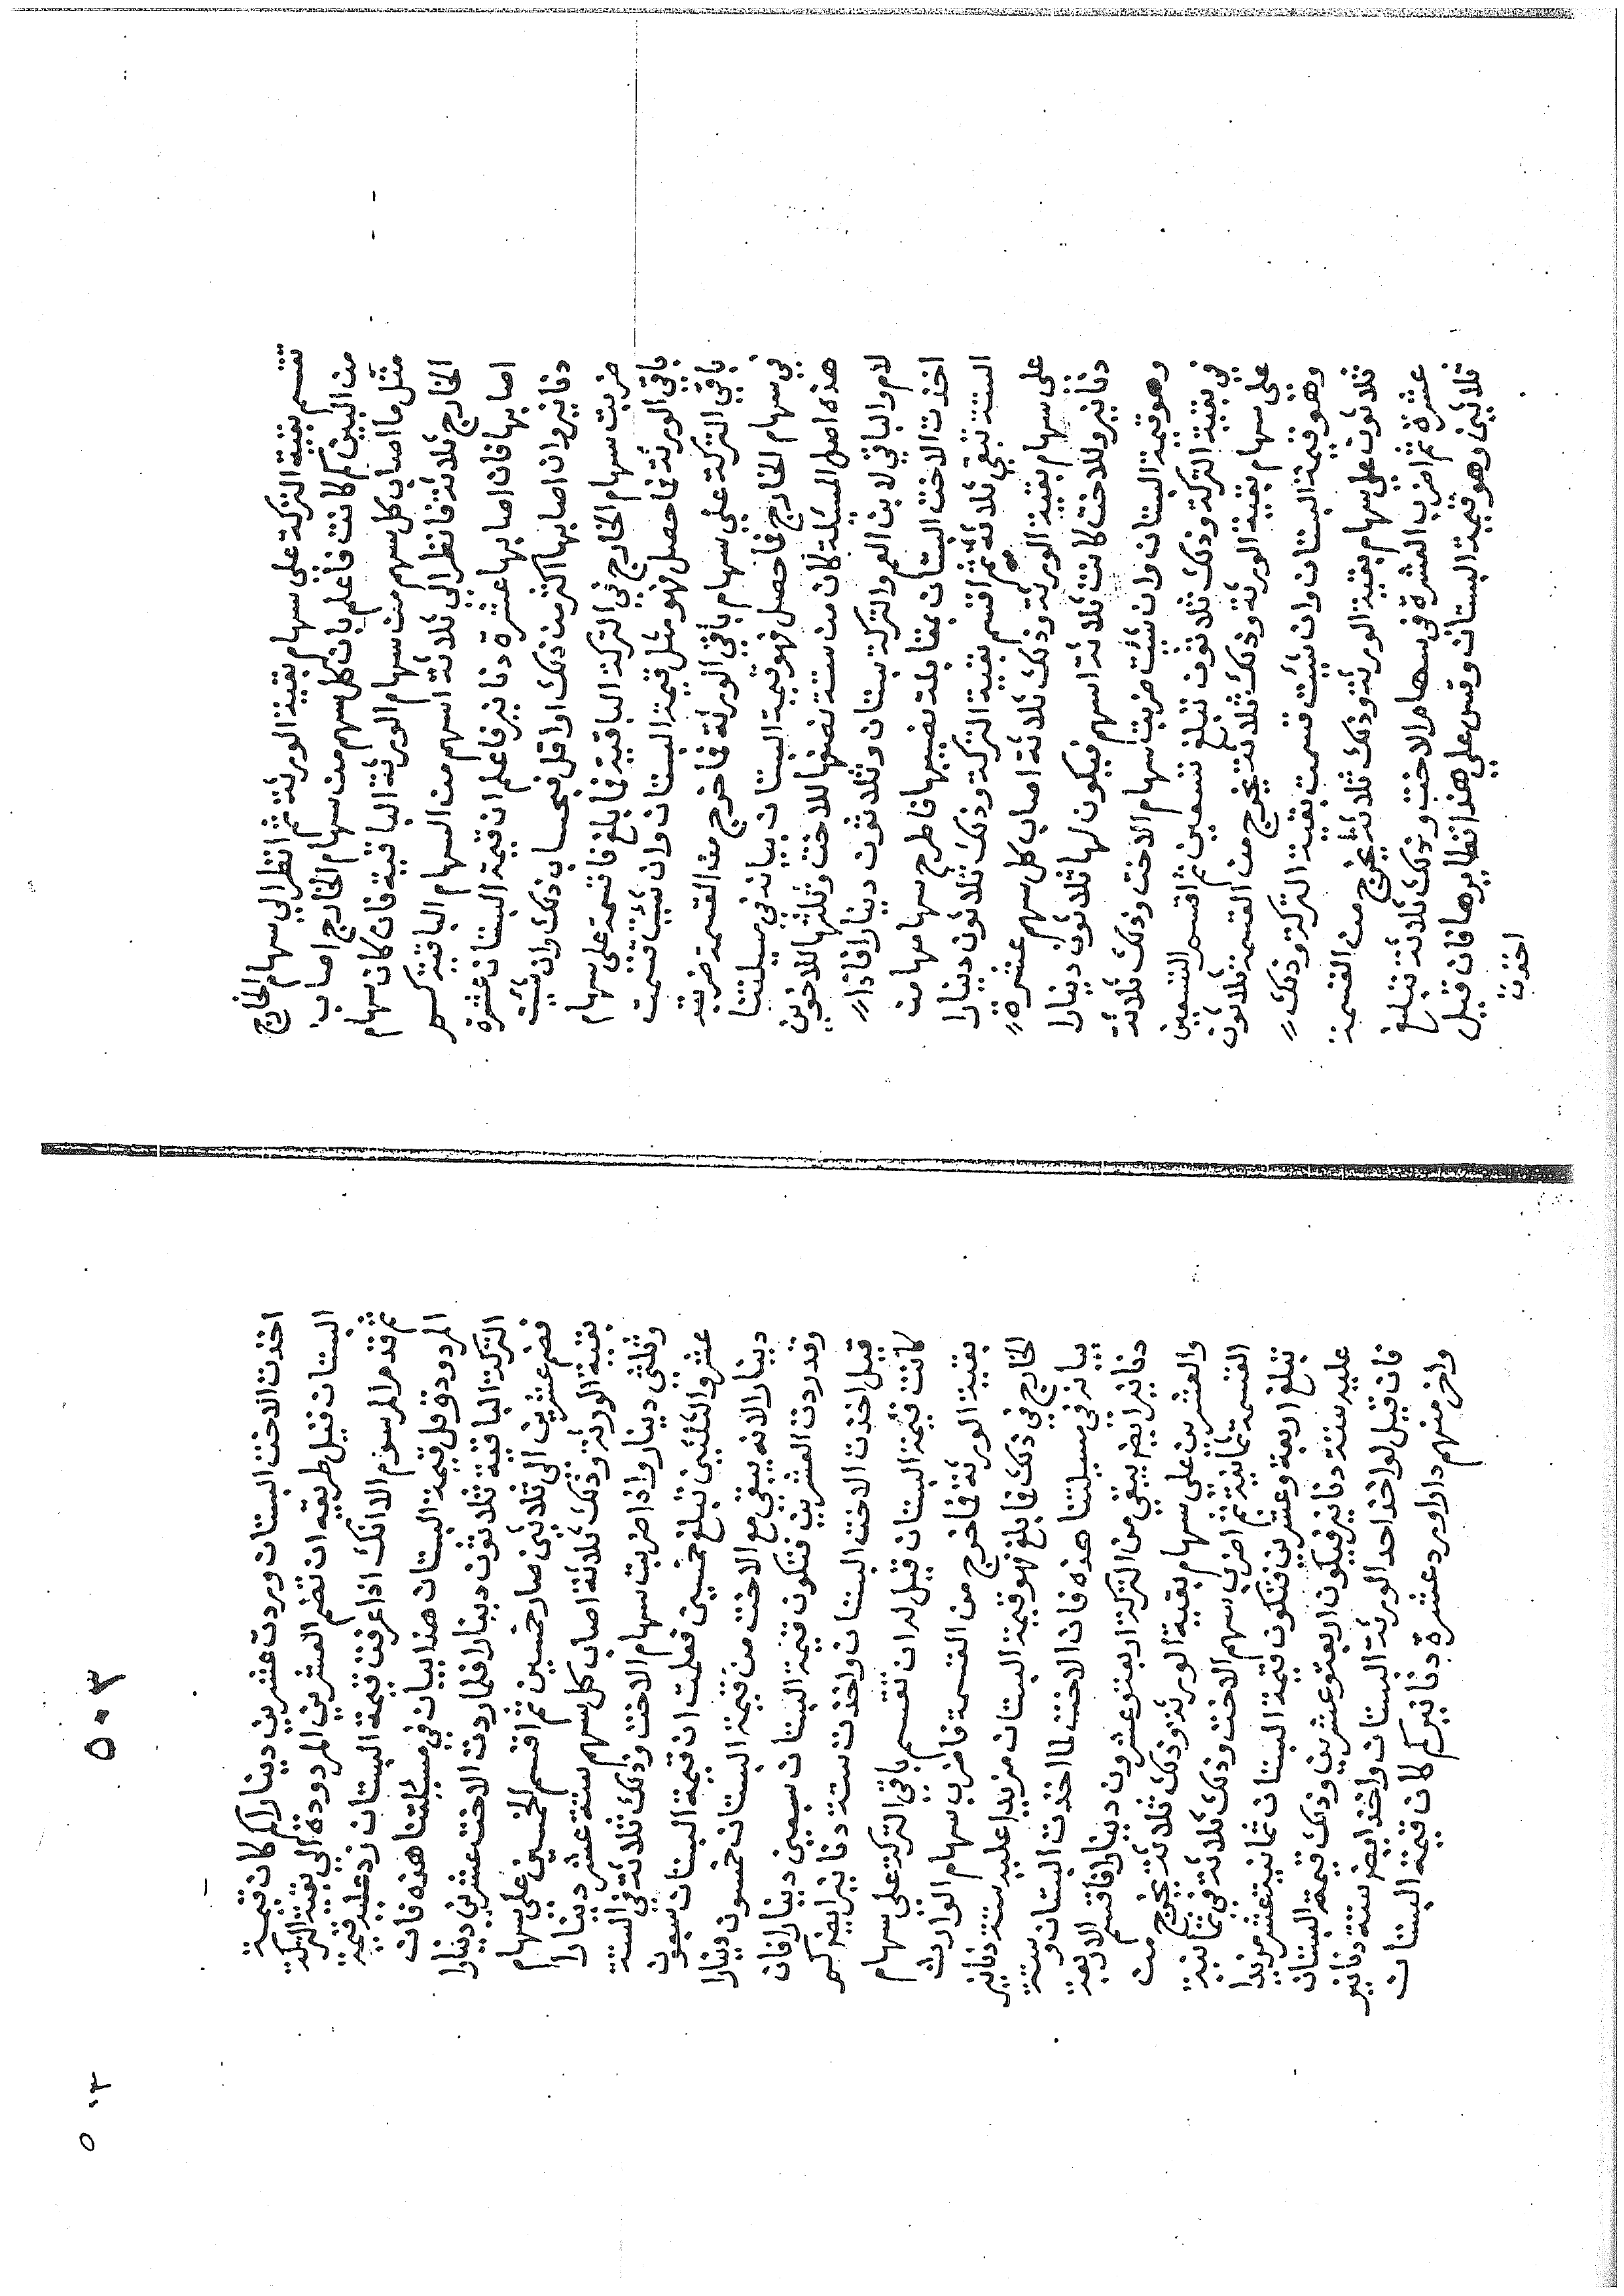 تقسم بقية التركة على سهام بقية الورثة ثم انظر الى سهام الخارج
من البين كم كانت فاعلم بان كل سهم من سهام الخارج اصاب
مثل ما اصاب كل سهم من سهام الورثة الباقية فان كان سهام
الخارج ثلاثة فانظر الى ثلاثة اسهم من السهام الباقية كم
اصابها فان اصابها عشرة دنانير فاعلم ان قيمة البستان عشرة
دنانير وان اصابها اكثر من ذلك او اقل فبحساب ذلك وان شيت
ضربت سهام الخارج في التركة الباقية فما بلغ فاقسمه على سهام
باقي الورثة فما حصل فهو مثل قيمة البستان وان شيت قسمت
باقي التركة على سهام باقي الورثة فما خرج من القسمة ضربته
في سهام الخارج فما حصل فهو قيمة البستان بيانه في مسيلتنا
هذه اصل المسيلة كان من ستة نصفها للاخت وثلثها للاخوين
لام والباقي لابن العم والتركة بستان وثلاثون دينارا فاذا
اخذت الاخت البستان بمقابلة نصيبها فاطرح سهامها من
الستة تبقى ثلاثة ثم اقسم بقية التركة وذلك ثلاثون دينارا
على سهام بقية الورثة وذلك ثلاثة اصاب كل سهم عشرة
دنانير وللاخت كانت ثلاثة اسهم فيكون لها ثلاثون دينارا
وهو قيمة البستان وان شيت ضربت سهام الاخت وذلك ثلاثة
في بقية التركة وذلك ثلاثون تبلغ تسعين ثم اقسم التسعين
على سهام بقية الورثة وذلك ثلاثة يخرج من القسمة ثلاثون
وهو قيمة البستان وان شيت قسمت بقية التركة وذلك
ثلاثون على سهام بقية الورثة وذلك ثلاثة يخرج من القسمة
عشرة ثم اضرب العشرة في سهام الاخت وذلك ثلاثة تبلغ
ثلاثين وهو قيمة البستان وقس على هذا نظايرها فان قيل
اخذت
اخذت الاخت البستان وردت عشرين دينارا كم كان قيمة
البستان قيل طريقه ان تضم العشرين المردودة الى بقية التركة
ثم تقدم المرسوم الا انك اذا عرفت قيمة البستان زد عليه قيمة
المردود وقل قيمة البستان هذا بيان في مسيلتنا هذه فان
التركة الباقية ثلاثون دينارا فلما ردت الاخت عشرين دينارا
فضم عشرين الى ثلاثين صار خمسين ثم اقسم الخمسين على سهام
بقية الورثة وذلك ثلاثة اصاب كل سهم ستة عشر دينارا
وثلثى دينار واذا ضربت سهام الاخت وذلك ثلاثة في الستة
عشر والثلثين تبلغ خمسين فعلمت ان قيمة البستان سبعون
دينارا لانه يبقى مع الاخت من قيمة البستان خمسون دينارا
وقد ردت العشرين فتكون قيمة البستان سبعين دينارا فان
قيل اخذت الاخت البستان واخذت ستة دنانير ايضا كم
كانت قيمة البستان قيل له ان تقسم باقي التركة على سهام
بقية الورثة فما خرج من القسمة فاضرب سهام الوارث
الخارج في ذلك فما بلغ فهو قيمة البستان مزيدا عليه ستة دنانير
بيانه في مسيلتنا هذه فان الاخت لما اخذت البستان وستة
دنانير ايضا يبقى من التركة اربعة وعشرون دينارا فاقسم الاربعة
والعشرين على سهام بقية الورثة وذلك ثلاثة يخرج من
القسمة ثمانية ثم اضرب سهم الاخت وذلك ثلاثة في ثمانية
تبلغ اربعة وعشرين فتكون قيمة البستان ثمانية عشر مزيدا
عليه ستة دنانير فيكون اربعة وعشرين وذلك قيمة البستان
فان قيل لو اخذ احد الورثة البستان واخذ ايضا ستة دنانير
واخر منهم دارا ورد عشرة دنانير كم كان قيمة البستان
٥٠٣
٥٠٣